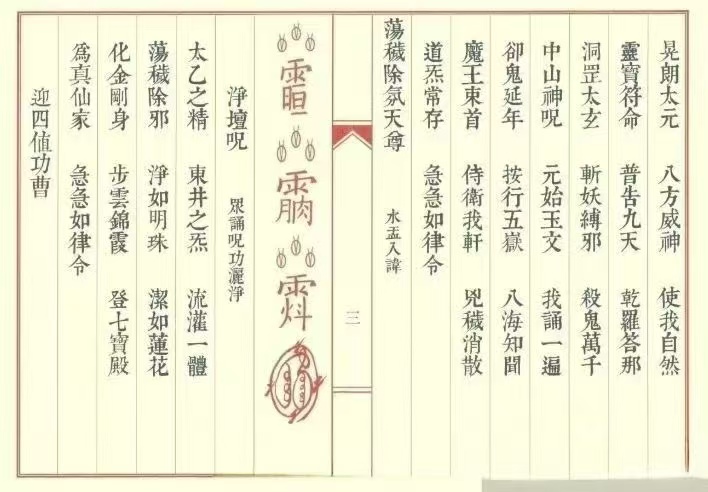 晃朗太元 八方威神 使我自然
靈寶符命 普告九天 乾羅答那
洞罡太玄 斬妖縛邪 殺鬼萬千
中山神呪 元始玉文 我誦一遍
卻鬼延年 按行五嶽 八海知聞
魔王束首 侍衛我軒 兇穢消散
道炁常存 急急如律令
蕩穢除氛天尊 水盂入諱
三
淨壇呪 眾誦呪功灑淨
太乙之精 東井之炁 流灌一體
蕩穢除邪 淨如明珠 潔如蓮花
化金剛身 步雲錦霞 登七寶殿
爲真仙家 急急如律令
迎四値功曹